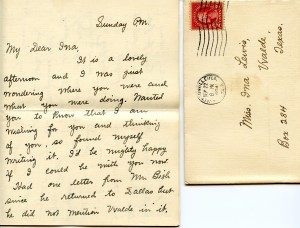 Sunday P.M.
My Dear Ina,
It is a lovely
afternoon and I was just
wondering where you were and
what you were doing. Wanted
you to know that I am
wishing for you and thinking
of you, so found myself
writing it. I'd be mighty happy
if I could be with you now
Had one letter from Mr. Bish
since he returned to Dallas but
he did not mention Uvalde in it.
Miss Ina Lewis,
Uvalde,
Texas.
Box 284